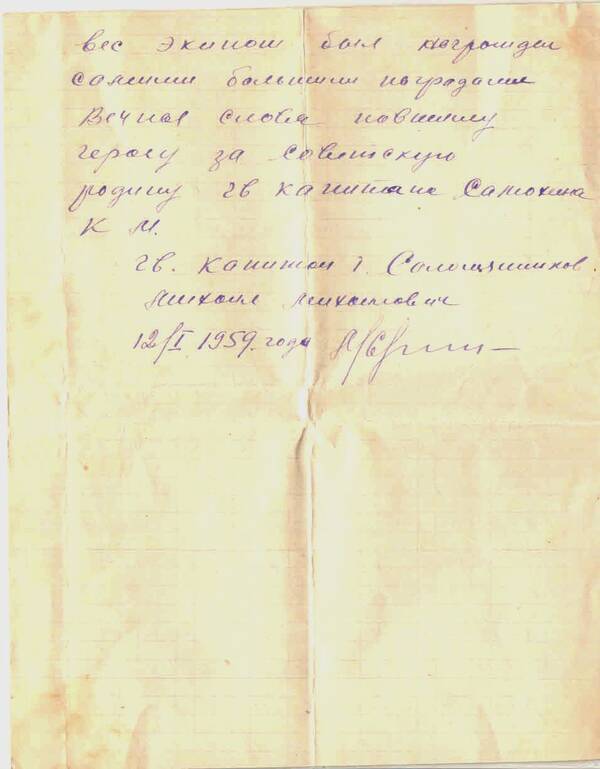 вес экипаж был награжден
самыми большими наградами
Вечная слова павшему
герою за советскую
родину гв капитана Самохина
К М.
гв. капитан
Михаил Михайлович
12/I 1959. года